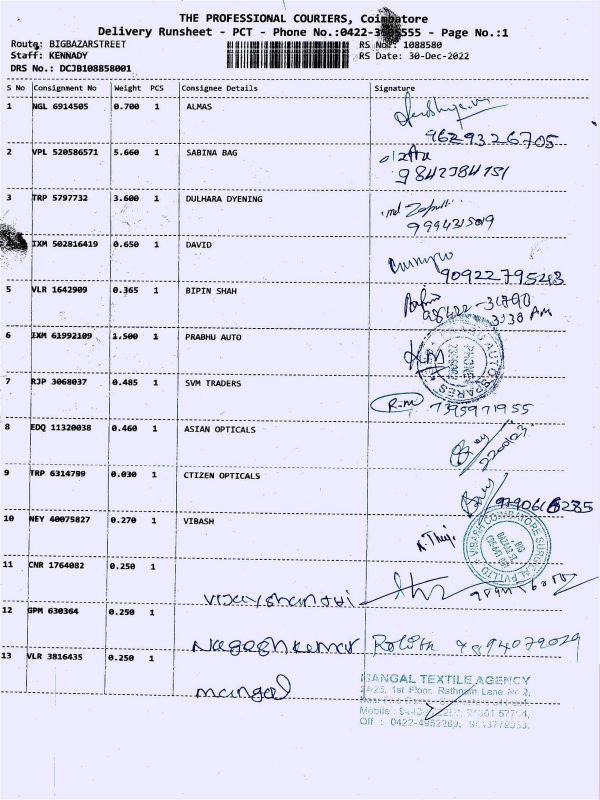 THE PROFESSIONAL COURIERS, Coimbatore
Delivery Runsheet - PCT - Phone No.:0422-3505555 - Page No.:1
Route: BIGBAZARSTREET RS No.: 1088580
Staff: KENNADY RS Date: 30-Dec-2022
DRS No.: DCJB108858001
S No Consignment No Weight PCS Consignee Details Signature
1 NGL 6914505 0.700 1 ALMAS
9629326705
2 VPL 520586571 5.660 1 SABINA BAG
9842384151
3 TRP 5797732 3.600 1 DULHARA DYENING
9994315019
4 IXM 502816419 0.650 1 DAVID
90922795243
5 VLR 1642909 0.365 1 BIPIN SHAH
3:30 AM
6 IXM 61992109 1.500 1 PRABHU AUTO
7 RJP 3068037 0.485 1 SVM TRADERS
R.m 7395971955
8 EDQ 11320038 0.460 1 ASIAN OPTICALS
9 TRP 6314799 0.030 1 CTIZEN OPTICALS
10 NEY 40075827 0.270 1 VIBASH
VIBASH COIMBATORE SURGICAL PVT LTD
11 CNR 1764082 0.250 1
vijayshanthi
12 GPM 630364 0.250 1
Nageshkumar 9894079029
13 VLR 3816435 0.250 1
mangal
MANGAL TEXTILE AGENCY
1st Floor, Rathnam Lane No 2,
Mobile :
Off : 0422-4952289,